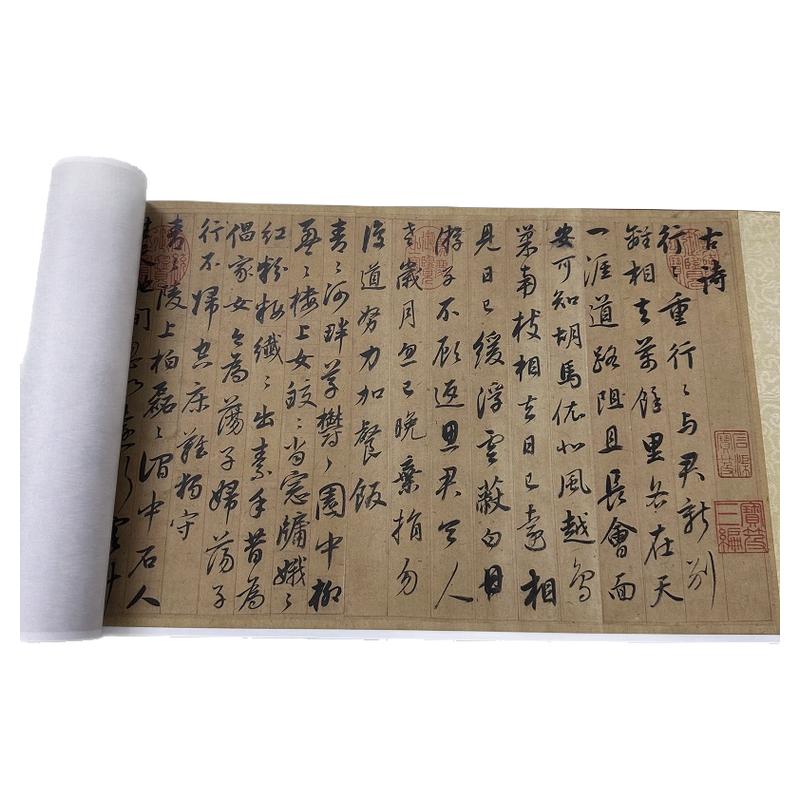 古詩
行〻重行〻与君新別
離相去萬餘里各在天
一涯道路阻且長會面
安可知胡馬依北風越鳥
巢南枝相去日已遠相
見日已緩浮雲蔽白日
游子不顧返思君令人
老歲月忽已晚棄捐勿
復道努力加餐飯
青〻河畔草鬱〻園中柳
盈〻樓上女皎〻當窓牖娥〻
紅粉粧纖〻出素手昔為
倡家女今為蕩子婦蕩子
行不歸空床難獨守
青〻陵上柏磊〻澗中石人
地間忽如遠行客
寶笈三編